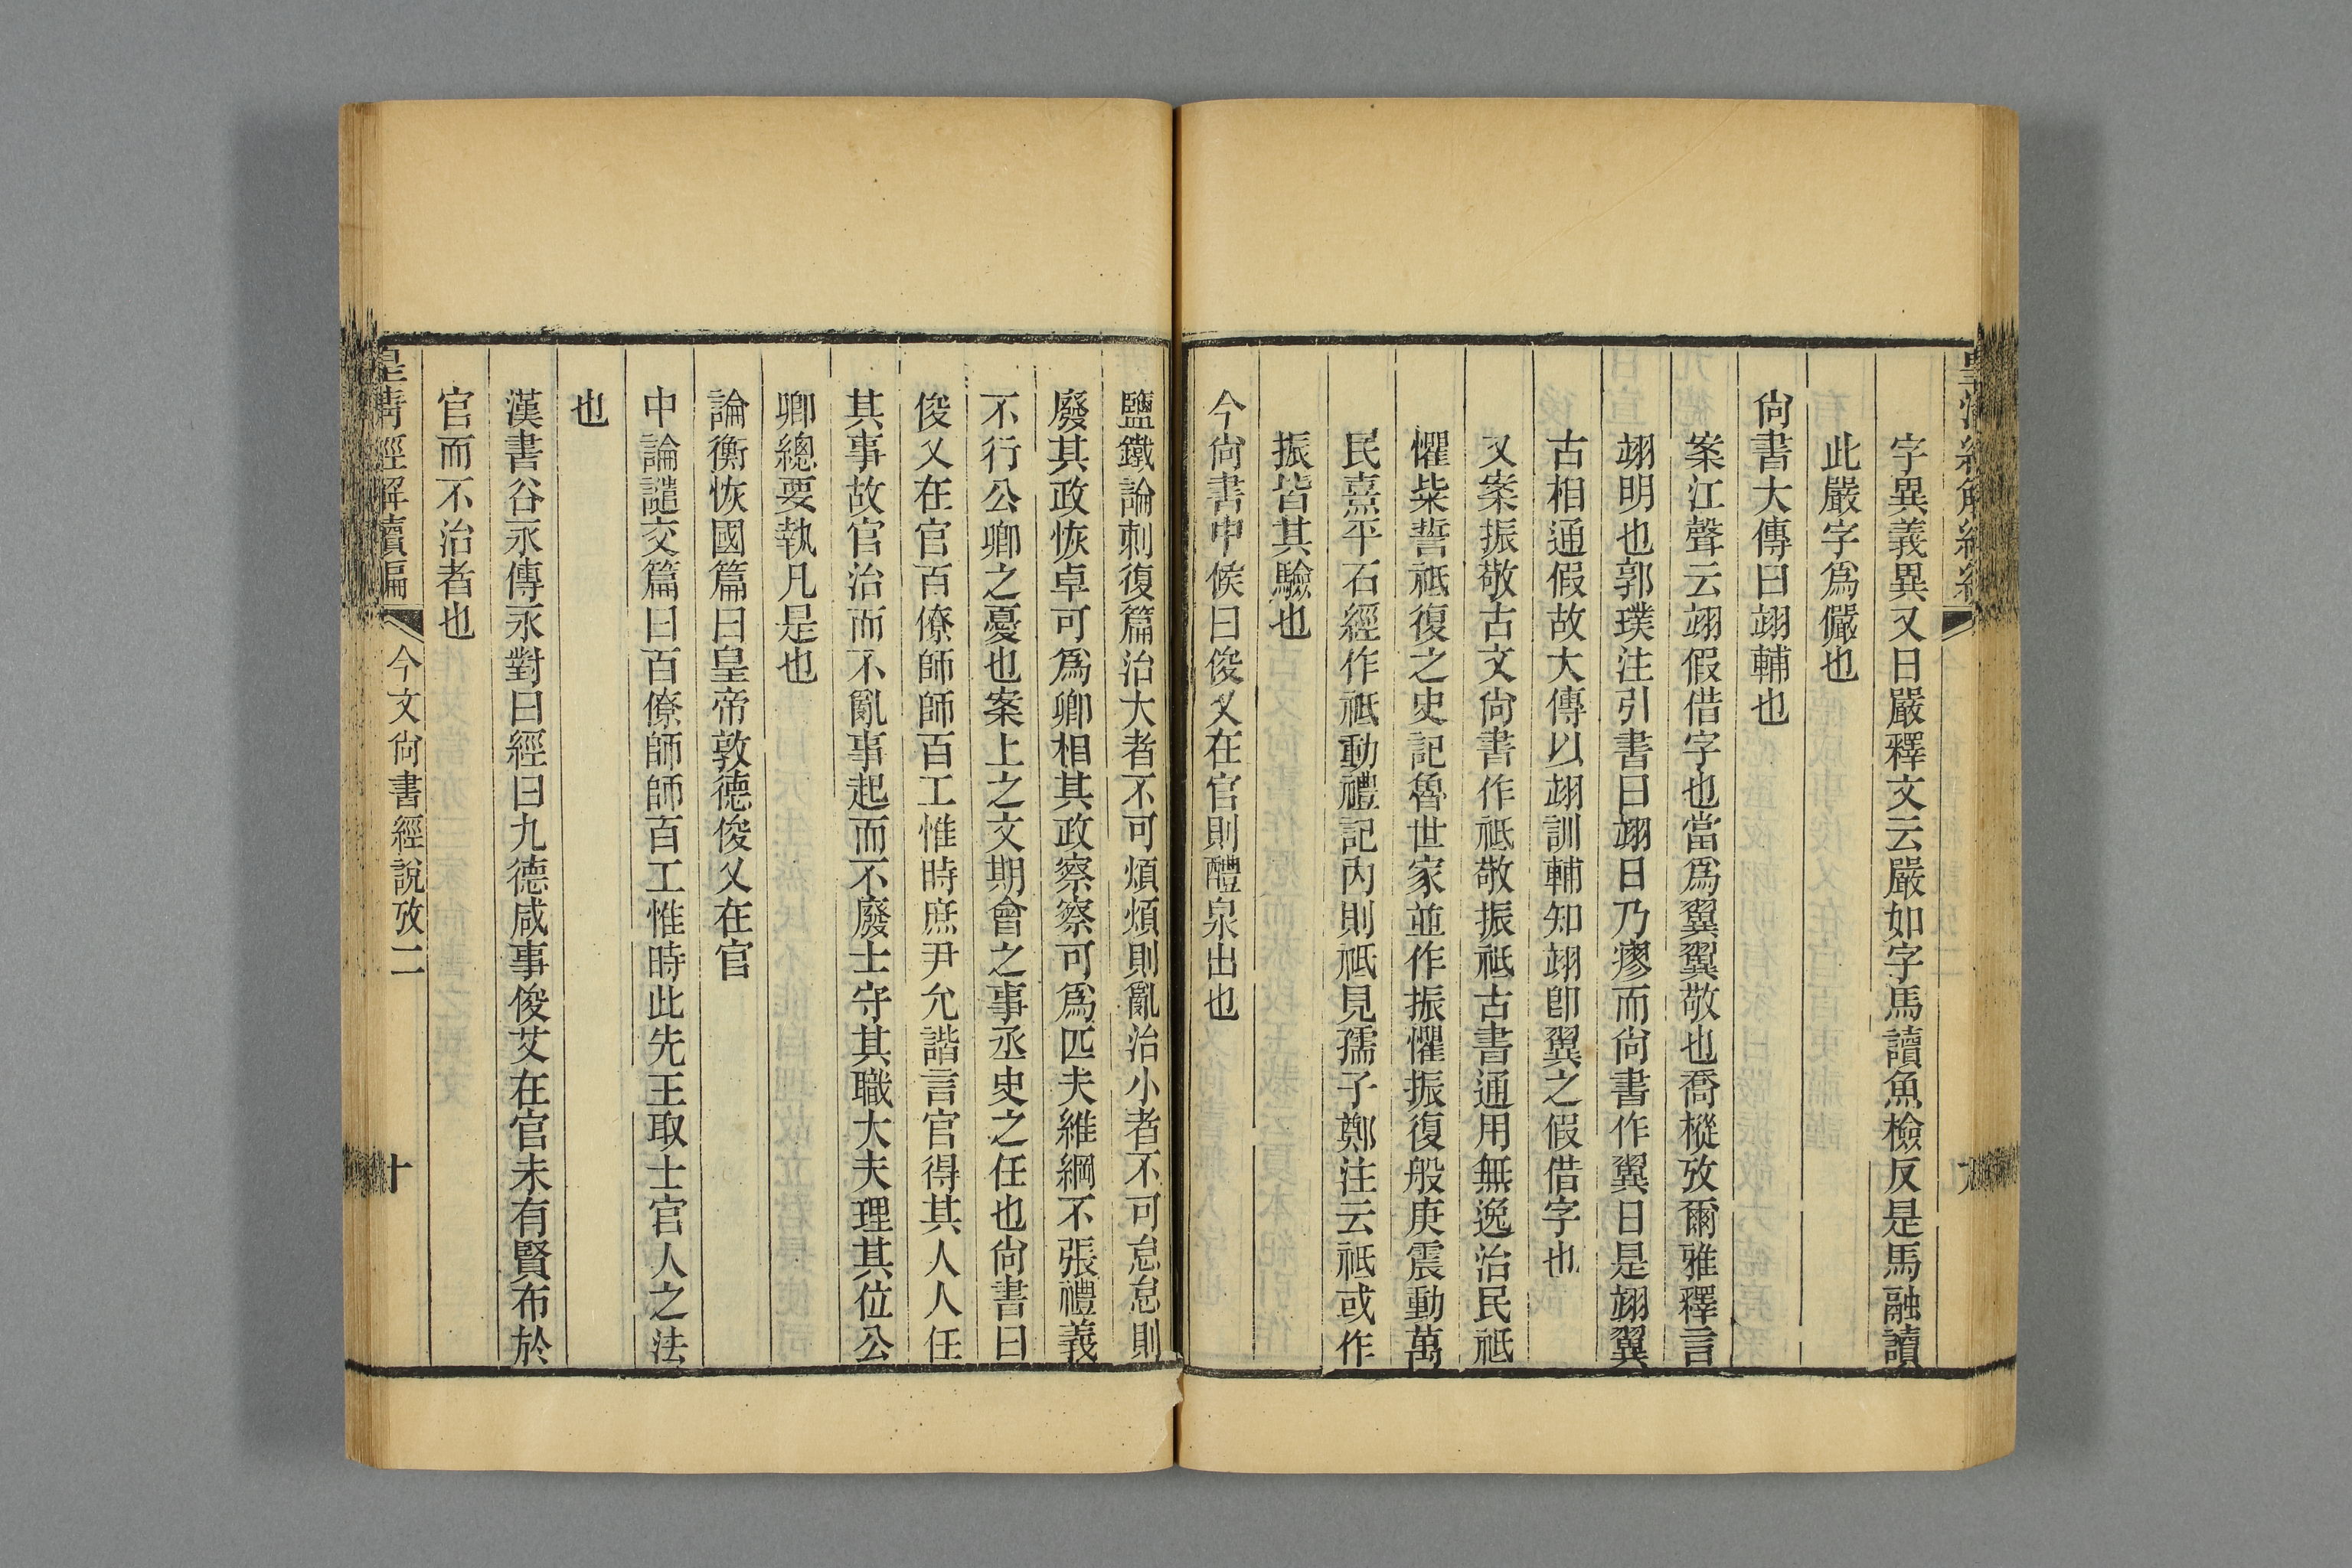 字異義異又曰嚴釋文云嚴如字馬讀魚檢反是馬融讀
此嚴字爲儼也
尚書大傳曰翊輔也
案江聲云翊假借字也當爲翼翼敬也喬樅攷爾雅釋言
翊明也郭璞注引書曰翊日乃瘳而尚書作翼日是翊翼
古相通假故大傳以翊訓輔知翊卽翼之假借字也
又案振敬古文尚書作祗敬振祗古書通用無逸治民祗
懼粊誓祗復之史記魯世家並作振懼振復般庚震動萬
民熹平石經作祗動禮記內則祗見孺子鄭注云祗或作
振皆其驗也
今尚書中候曰俊乂在官則醴泉出也
鹽鐵論刺復篇治大者不可煩煩則亂治小者不可怠怠則
廢其政恢卓可爲卿相其政察察可爲匹夫維綱不張禮義
不行公卿之憂也案上之文期會之事丞史之任也尚書曰
俊乂在官百僚師師百工惟時庶尹允諧言官得其人人任
其事故官治而不亂事起而不廢士守其職大夫理其位公
卿總要執凡是也
論衡恢國篇曰皇帝敦德俊乂在官
中論譴交篇曰百僚師師百工惟時此先王取士官人之法
也
漢書谷永傳永對曰經曰九德咸事俊艾在官未有賢布於
官而不治者也
皇清經解續編
今文尚書經說攷二
十